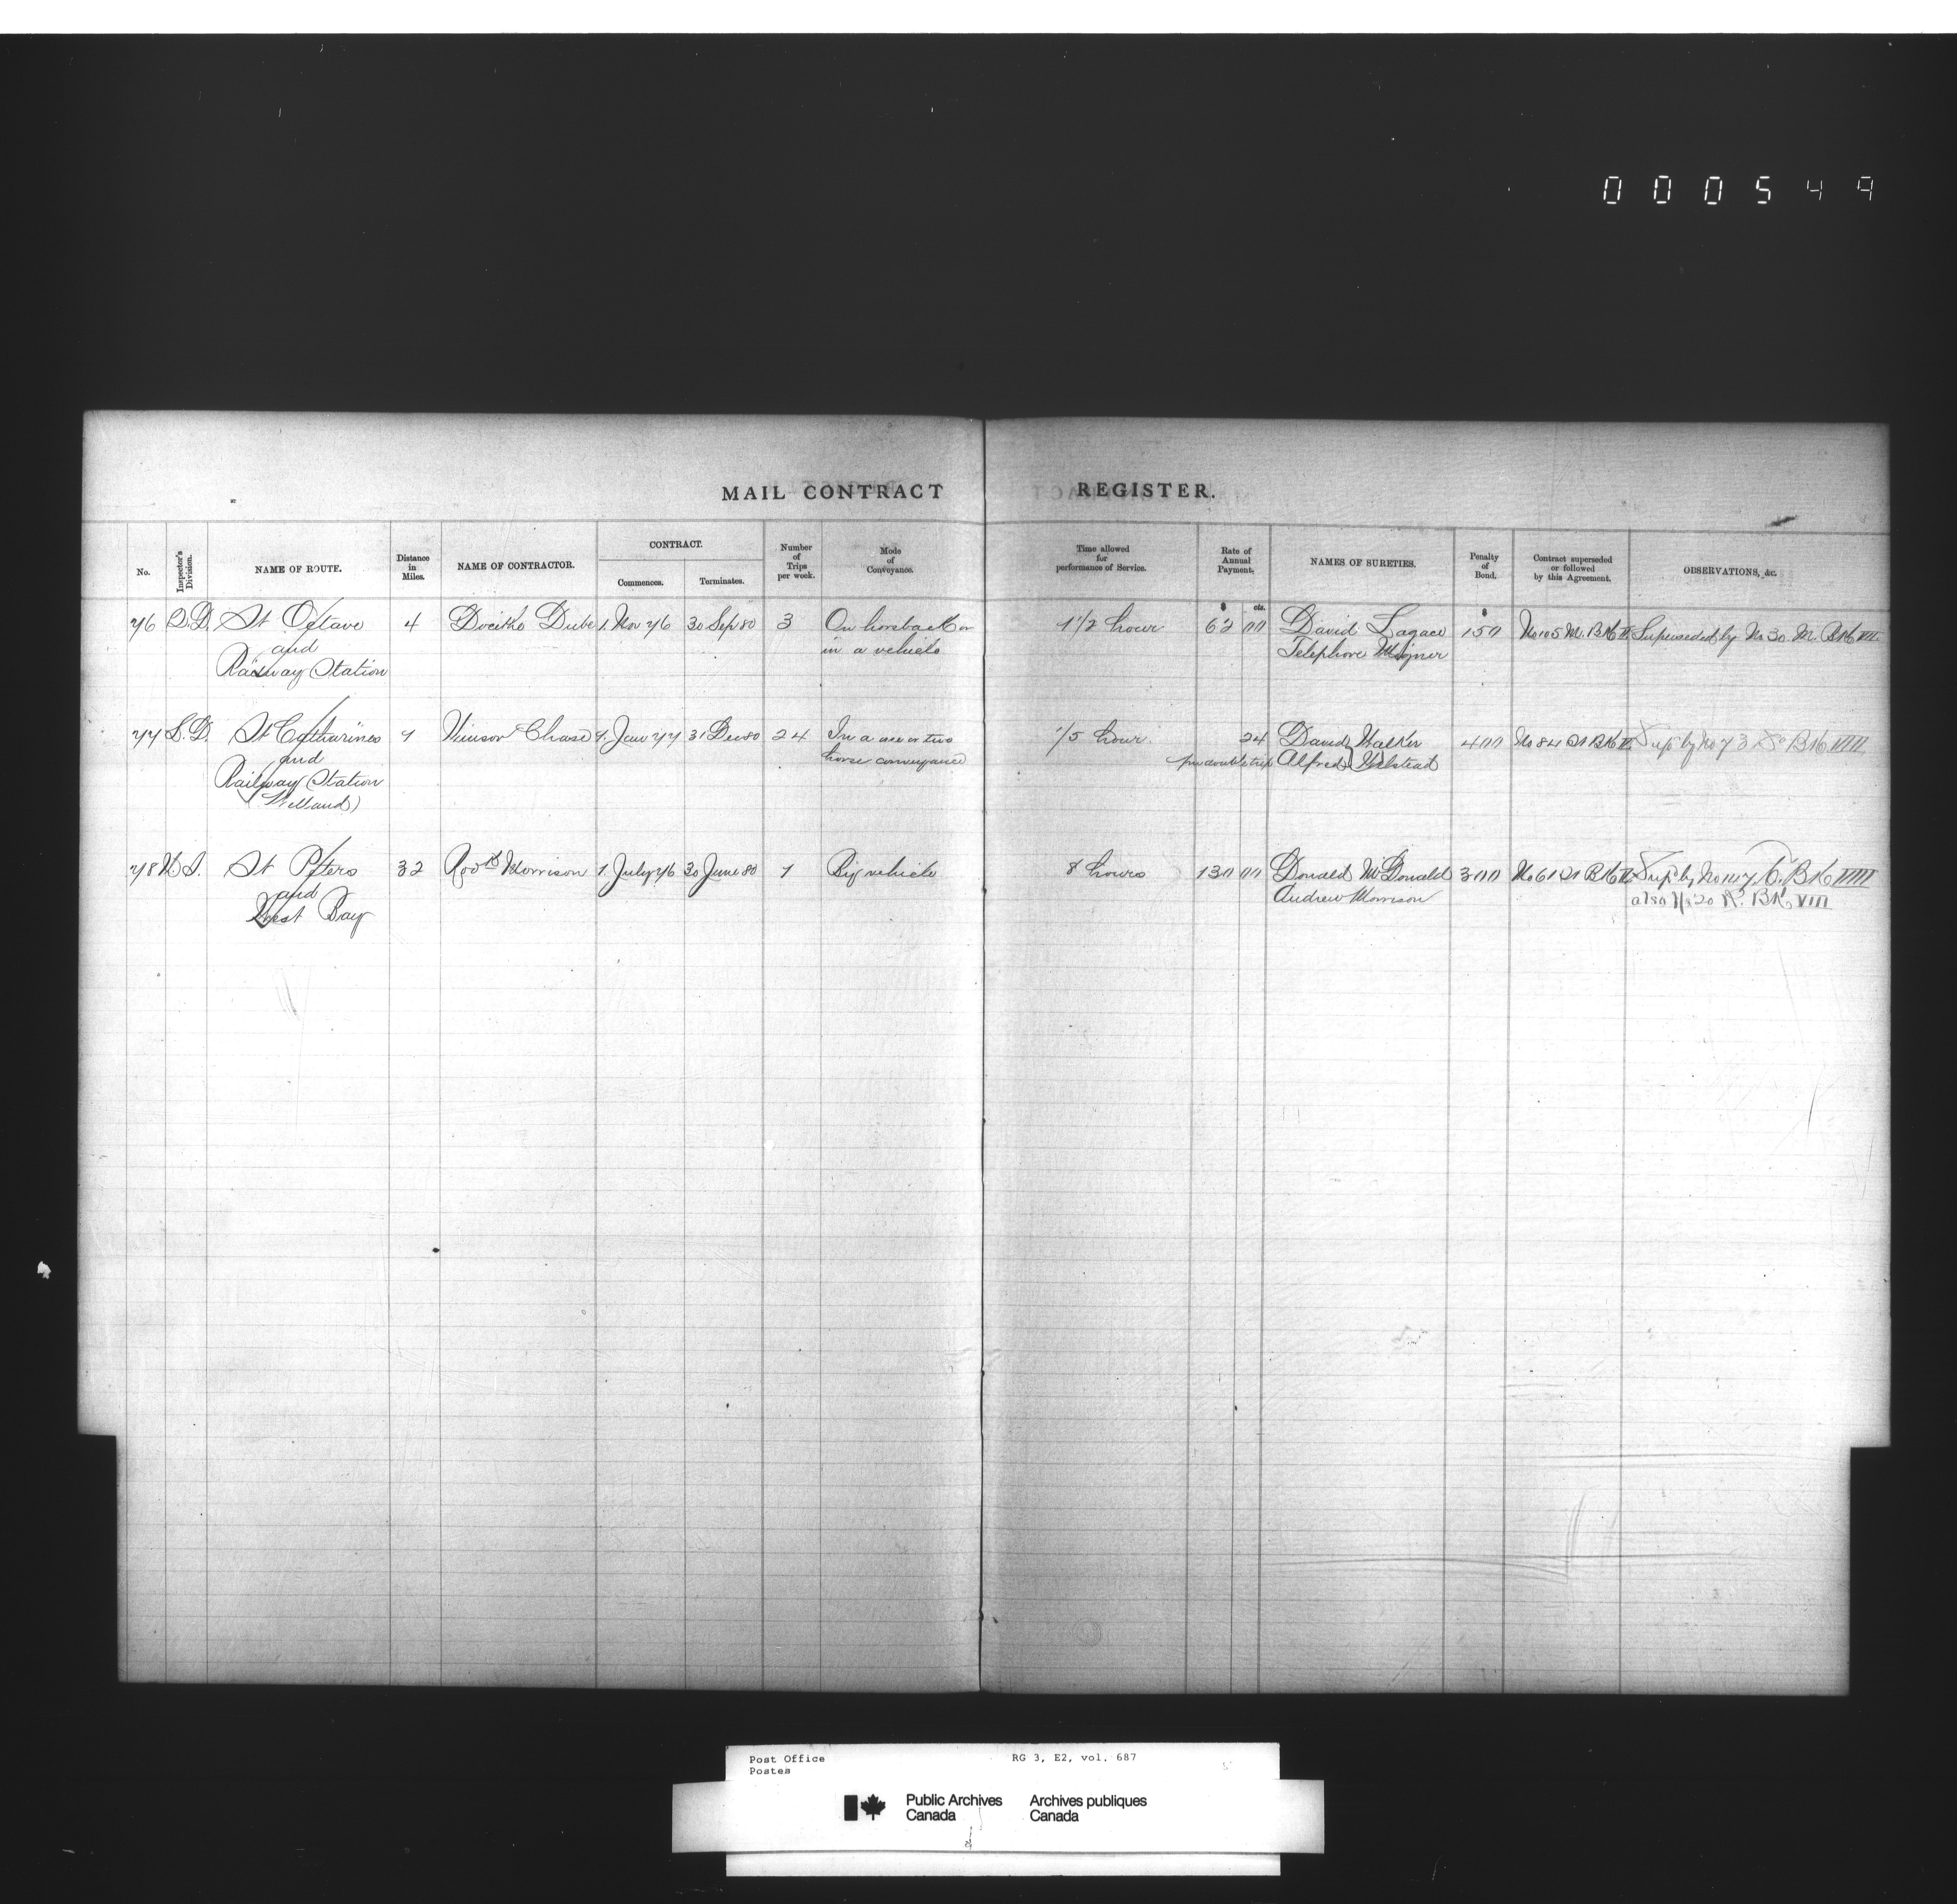 000549
MAIL CONTRACT REGISTER.
No. Inspector's Division. NAME OF ROUTE. Distance in Miles. NAME OF CONTRACTOR. CONTRACT. Commences. Terminates. Number of Trips per week. Mode of Conveyance. Time allowed for performance of Service. Rate of Annual Payment. NAMES OF SURETIES. Penalty of Bond. Contract superseded or followed by this Agreement. OBSERVATIONS, &c.
$ cts. $
76 2.D. St Octave 4 Dube 1. Nov 76 30 Sep 80 3 On horseback or 1 1/2 hour 62 00 David Lagace 150 No 105 M. Bk VI Superseded by No 30 M. Bk VII
and in a vehicle Telephore
Railway Station
77 S.D. St Catharines 1 Winsor Chase 1. Jan 77 31 Dec 80 24 In a one or two 1/5 hour. 24 David Walker 400 No 84 St Bk VI Supd by No 73 Bk VIII
and horse conveyance per double trip Alfred
Railway Station
(Welland)
78 N.S. St Peters 32 Rodk Morrison 1. July 76 30 June 80 1 By vehicle 8 hours 130 00 Donald McDonald 300 No 61 St Bk VI Supd by No 147 P. Bk VIII
and Andrew Morrison also No 20 R. Bk VIII
West Bay
Post Office RG 3, E2, vol. 687
Postes
Public Archives Archives publiques
Canada Canada